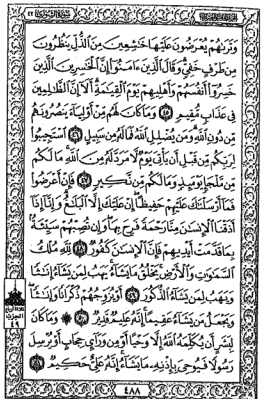 وَتَرَىٰهُمْ يُعْرَضُونَ عَلَيْهَا خَٰشِعِينَ مِنَ ٱلذُّلِّ يَنظُرُونَ
مِن طَرْفٍ خَفِىٍّ وَقَالَ ٱلَّذِينَ ءَامَنُوٓا۟ إِنَّ ٱلْخَٰسِرِينَ ٱلَّذِينَ
خَسِرُوٓا۟ أَنفُسَهُمْ وَأَهْلِيهِمْ يَوْمَ ٱلْقِيَٰمَةِ أَلَآ إِنَّ ٱلظَّٰلِمِينَ
فِى عَذَابٍ مُّقِيمٍ ٤٥ وَمَا كَانَ لَهُم مِّنْ أَوْلِيَآءَ يَنصُرُونَهُم
مِّن دُونِ ٱللَّهِ وَمَن يُضْلِلِ ٱللَّهُ فَمَا لَهُۥ مِن سَبِيلٍ ٤٦ ٱسْتَجِيبُوا۟
لِرَبِّكُم مِّن قَبْلِ أَن يَأْتِىَ يَوْمٌ لَّا مَرَدَّ لَهُۥ مِنَ ٱللَّهِ مَا لَكُم
مِّن مَّلْجَإٍ يَوْمَئِذٍ وَمَا لَكُم مِّن نَّكِيرٍ ٤٧ فَإِنْ أَعْرَضُوا۟
فَمَآ أَرْسَلْنَٰكَ عَلَيْهِمْ حَفِيظًا إِنْ عَلَيْكَ إِلَّا ٱلْبَلَٰغُ وَإِنَّآ إِذَآ
أَذَقْنَا ٱلْإِنسَٰنَ مِنَّا رَحْمَةً فَرِحَ بِهَا وَإِن تُصِبْهُمْ سَيِّئَةٌۢ
بِمَا قَدَّمَتْ أَيْدِيهِمْ فَإِنَّ ٱلْإِنسَٰنَ كَفُورٌ ٤٨ لِّلَّهِ مُلْكُ
ٱلسَّمَٰوَٰتِ وَٱلْأَرْضِ يَخْلُقُ مَا يَشَآءُ يَهَبُ لِمَن يَشَآءُ إِنَٰثًا
وَيَهَبُ لِمَن يَشَآءُ ٱلذُّكُورَ ٤٩ أَوْ يُزَوِّجُهُمْ ذُكْرَانًا وَإِنَٰثًا
وَيَجْعَلُ مَن يَشَآءُ عَقِيمًا إِنَّهُۥ عَلِيمٌ قَدِيرٌ ٥٠ ۞ وَمَا كَانَ
لِبَشَرٍ أَن يُكَلِّمَهُ ٱللَّهُ إِلَّا وَحْيًا أَوْ مِن وَرَآئِ حِجَابٍ أَوْ يُرْسِلَ
رَسُولًا فَيُوحِىَ بِإِذْنِهِۦ مَا يَشَآءُ إِنَّهُۥ عَلِىٌّ حَكِيمٌ ٥١
الحزب
٤٩
٤٨٨